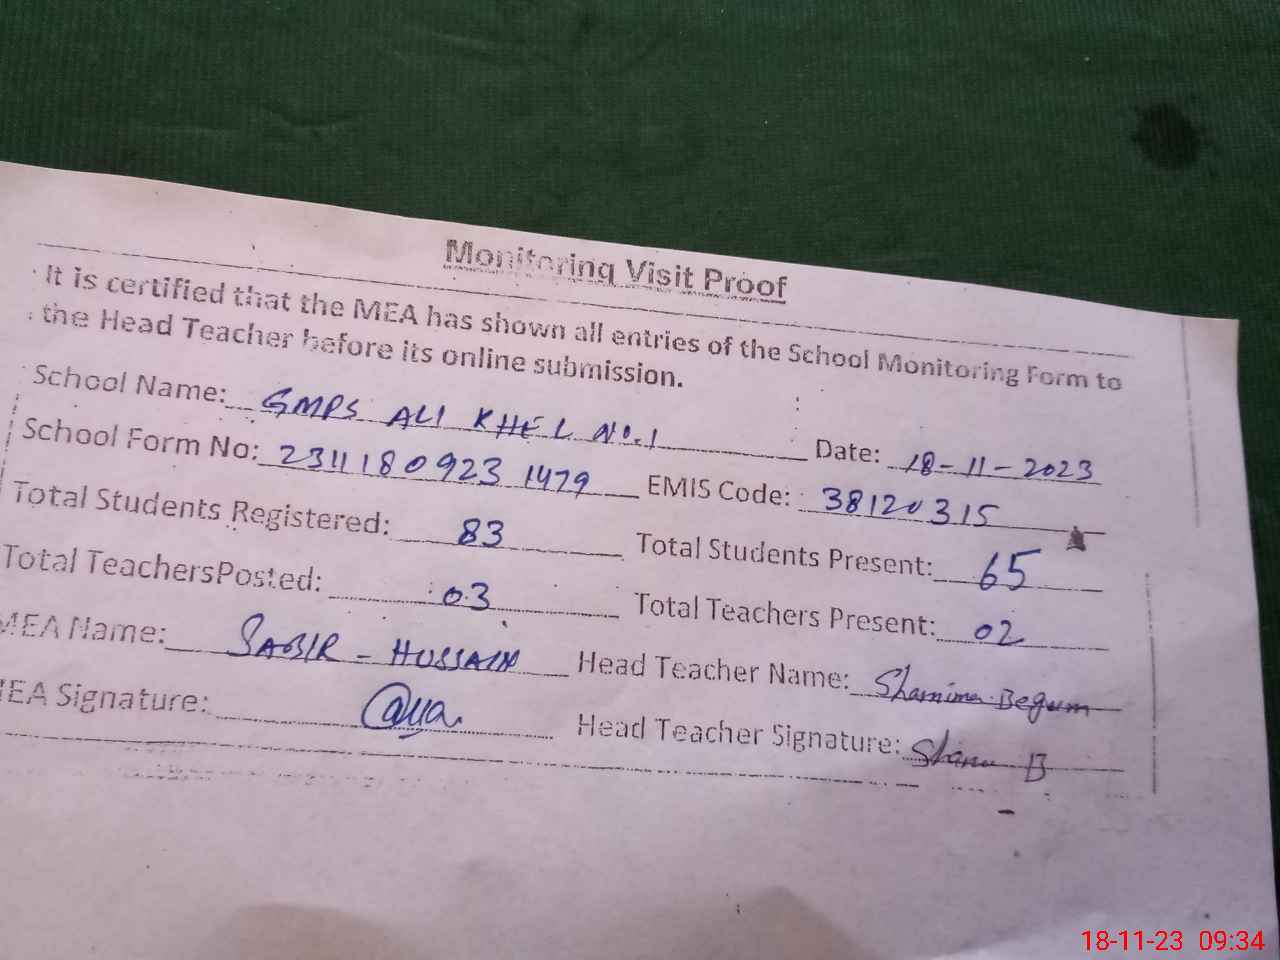 Monitoring Visit Proof
It is certified that the MEA has shown all entries of the School Monitoring Form to
the Head Teacher before its online submission.
School Name: GMPS ALI KHEL NO.1 Date: 18-11-2023
School Form No: 23111809231479 EMIS Code: 38120315
Total Students Registered: 83 Total Students Present: 65
Total TeachersPosted: 03 Total Teachers Present: 02
MEA Name: SABIR - HUSSAIN Head Teacher Name: Shamima Begum
MEA Signature: Head Teacher Signature:
18-11-23 09:34